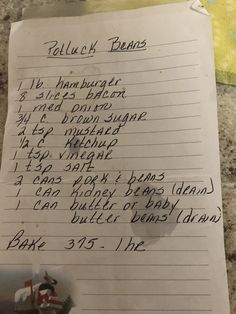 Potluck Beans
1 lb. hamburger
8 slices bacon
1 med onion
3/4 c brown sugar
2 tsp mustard
1/2 c ketchup
1 tsp vinegar
1 tsp salt
2 cans pork & beans
1 can kidney beans (drain)
1 can butter or baby
butter beans (drain)
Bake 375 - 1 hr